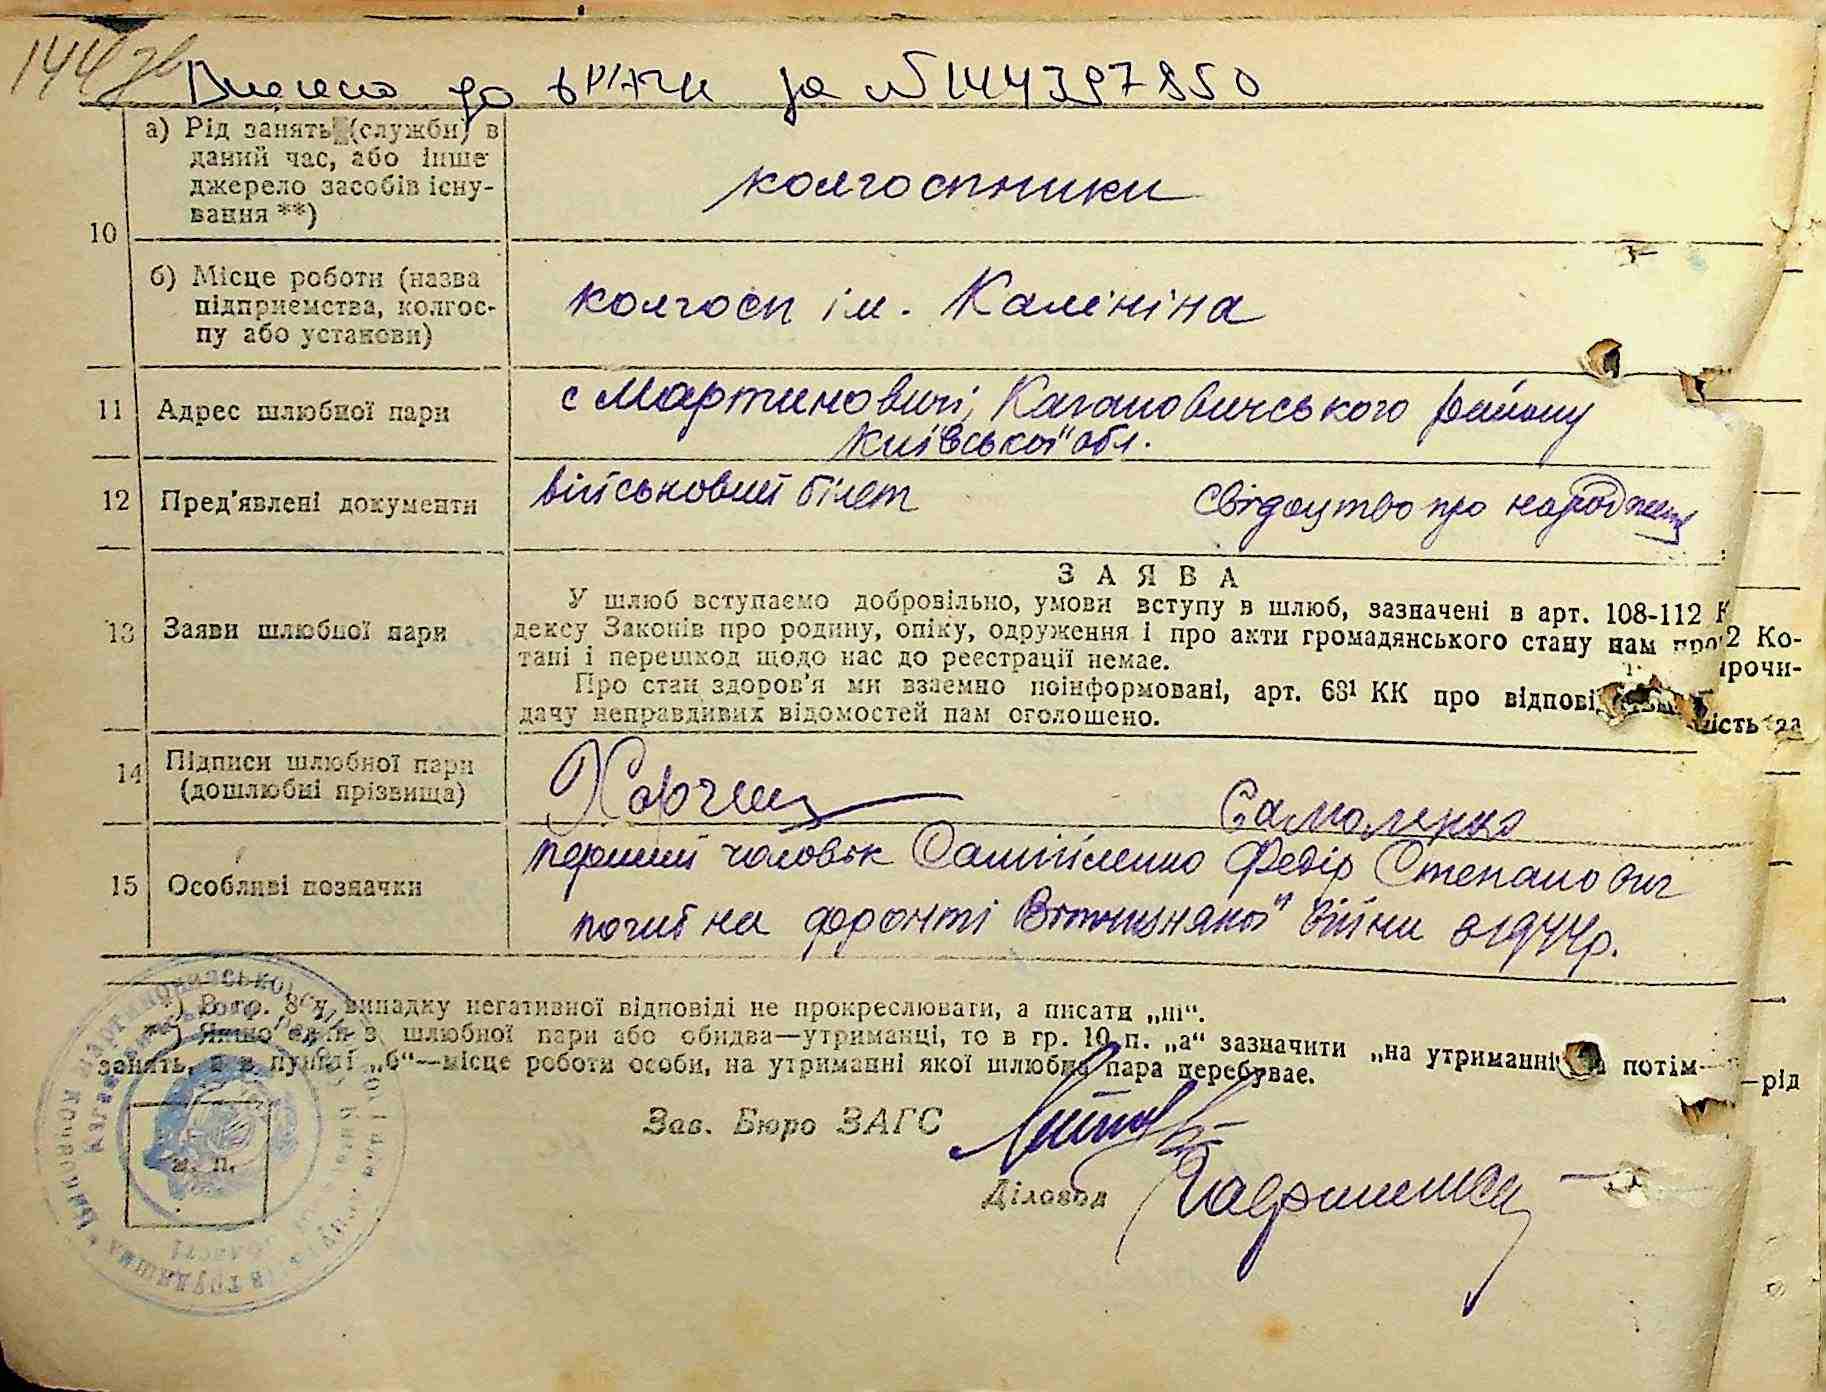 144 зв
Внесено до ДРАЦС за № 144397850
а) Рід занять (службн) в
даний час, або інше
джерело засобів існу-
вання **)
колгоспники
10
б) Місце роботи (назва
підприємства, колгос-
пу або установи)
колгосп ім. Калініна
11 Адрес шлюбної пари
с Мартиновичі, Кагановичського району
Київської обл.
12 Пред'явлені документи
військовий білет свідоцтво про народження
З А Я В А
13 Заяви шлюбної пари
У шлюб вступаємо добровільно, умови вступу в шлюб, зазначені в арт. 108-112 К
дексу Законів про родину, опіку, одруження і про акти громадянського стану нам про
2 Ко-
тані і перешкод щодо нас до реєстрації немає.
прочи-
Про стан здоров'я ми взаємно поінформовані, арт. 68¹ КК про відпові
дачу неправдивих відомостей нам оголошено.
ність за
14 Підписи шлюбної пари
(дошлюбні прізвища)
Харчец Самоленко
15 Особливі позначки
перший чоловік Самійленко Федір Степанович
погиб на фронті Вітчизняної війни в 1944р.
*) В гр. 8 у випадку негативної відповіді не прокреслювати, а писати „ні“.
**) Якщо один з шлюбної пари або обидва—утриманці, то в гр. 10 п. „а“ зазначити „на утриманні потім—
рід
занять, а в пункті „б“—місце роботи особи, на утриманні якої шлюбна пара перебуває.
Зав. Бюро ЗАГС
м. п.
Діловод